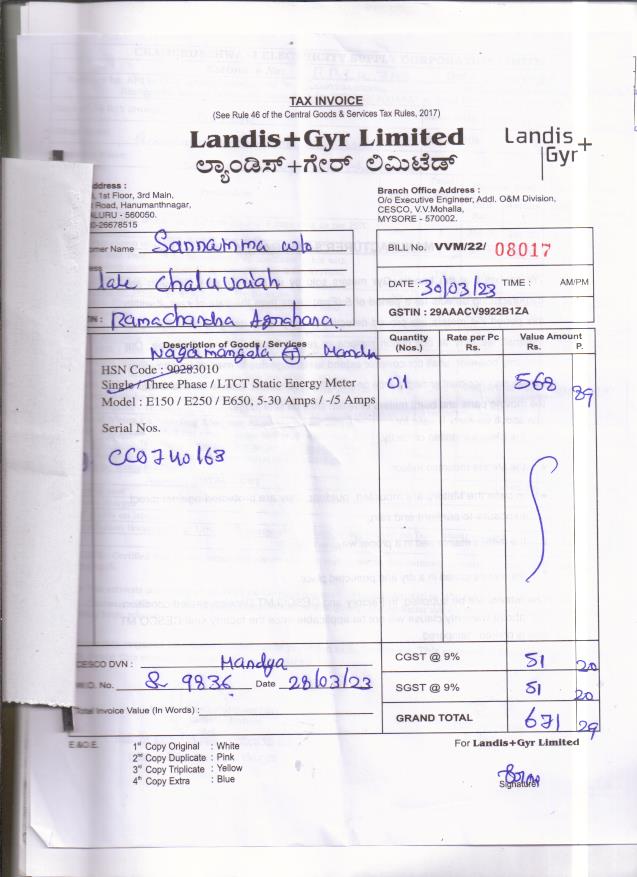 TAX INVOICE
(See Rule 46 of the Central Goods & Services Tax Rules, 2017)
Landis+Gyr Limited
ಲ್ಯಾಂಡಿಸ್+ಗೇರ್ ಲಿಮಿಟೆಡ್
Landis+
Gyr
ddress :
, 1st Floor, 3rd Main,
Road, Hanumanthnagar,
ALURU - 560050.
0-26678515
Branch Office Address :
O/o Executive Engineer, Addl. O&M Division,
CESCO, V.V.Mohalla,
MYSORE - 570002.
omer Name Sannamma w/o
late Chaluvaiah
Ramachandra Agrahara
Nagamangala (T). Mandya
BILL No. VVM/22/ 08017
DATE : 30/03/23 TIME : AM/PM
GSTIN : 29AAACV9922B1ZA
Description of Goods / Services Quantity (Nos.) Rate per Pc Rs. Value Amount Rs. P.
HSN Code : 90283010
Single / Three Phase / LTCT Static Energy Meter 01 568 89
Model : E150 / E250 / E650, 5-30 Amps / -/5 Amps
Serial Nos.
CC0740163
CESCO DVN : Mandya
CGST @ 9% 51 20
No. 9836 Date 28/03/23
SGST @ 9% 51 20
Total Invoice Value (In Words) :
GRAND TOTAL 671 29
E.&O.E.
1st Copy Original : White
2nd Copy Duplicate : Pink
3rd Copy Triplicate : Yellow
4th Copy Extra : Blue
For Landis+Gyr Limited
Signature